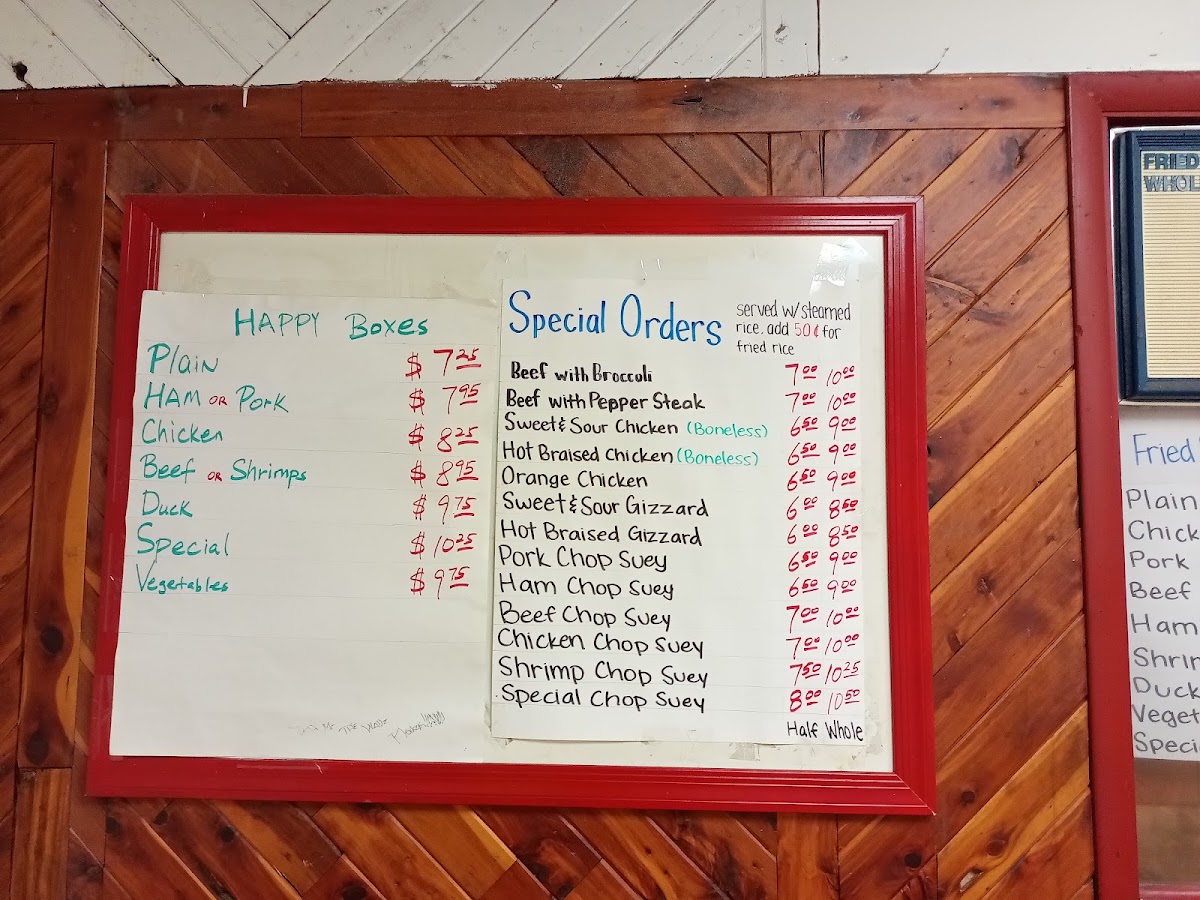 HAPPY Boxes
Plain $ 7.25
HAM OR Pork $ 7.95
Chicken $ 8.25
Beef OR Shrimps $ 8.95
Duck $ 9.75
Special $ 10.25
Vegertables $ 9.75
Special Orders
served w/steamed
rice. add 50¢ for
fried rice
Beef with Broccoli 7.00 10.00
Beef with Pepper Steak 7.00 10.00
Sweet & Sour Chicken (Boneless) 6.50 9.00
Hot Braised Chicken (Boneless) 6.50 9.00
Orange Chicken 6.50 9.00
Sweet & Sour Gizzard 6.00 8.50
Hot Braised Gizzard 6.00 8.50
Pork Chop Suey 6.50 9.00
Ham Chop Suey 6.50 9.00
Beef Chop Suey 7.00 10.00
Chicken Chop Suey 7.00 10.00
Shrimp Chop Suey 7.50 10.25
Special Chop Suey 8.00 10.50
Half Whole
FRIED
WHOL
Fried
Plain
Chick
Pork
Beef
Ham
Shrim
Duck
Veget
Speci